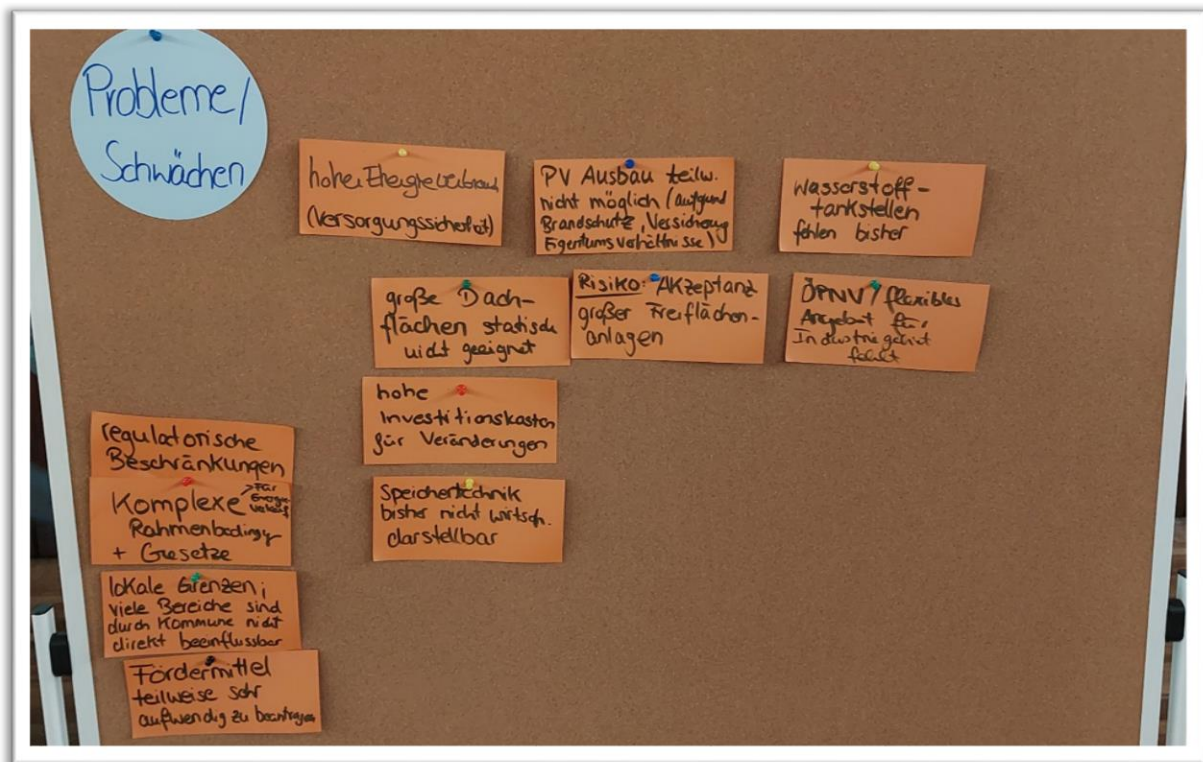 Probleme/
Schwächen
hoher Energieverbrauch
(Versorgungssicherheit)
PV Ausbau teilw.
nicht möglich (aufgrund
Brandschutz, Versicherung
Eigentumsverhältnisse)
Wasserstoff-
tankstellen
fehlen bisher
große Dach-
flächen statisch
nicht geeignet
Risiko: Akzeptanz
großer Freiflächen-
anlagen
ÖPNV / flexibles
Angebot für
Industriegebiet
fehlt
hohe
Investitionskosten
für Veränderungen
Speichertechnik
bisher nicht wirtsch.
darstellbar
regulatorische
Beschränkungen
Komplexe
Rahmenbedingg
+ Gesetze
lokale Grenzen;
viele Bereiche sind
durch Kommune nicht
direkt beeinflussbar
Fördermittel
teilweise sehr
aufwendig zu beantragen